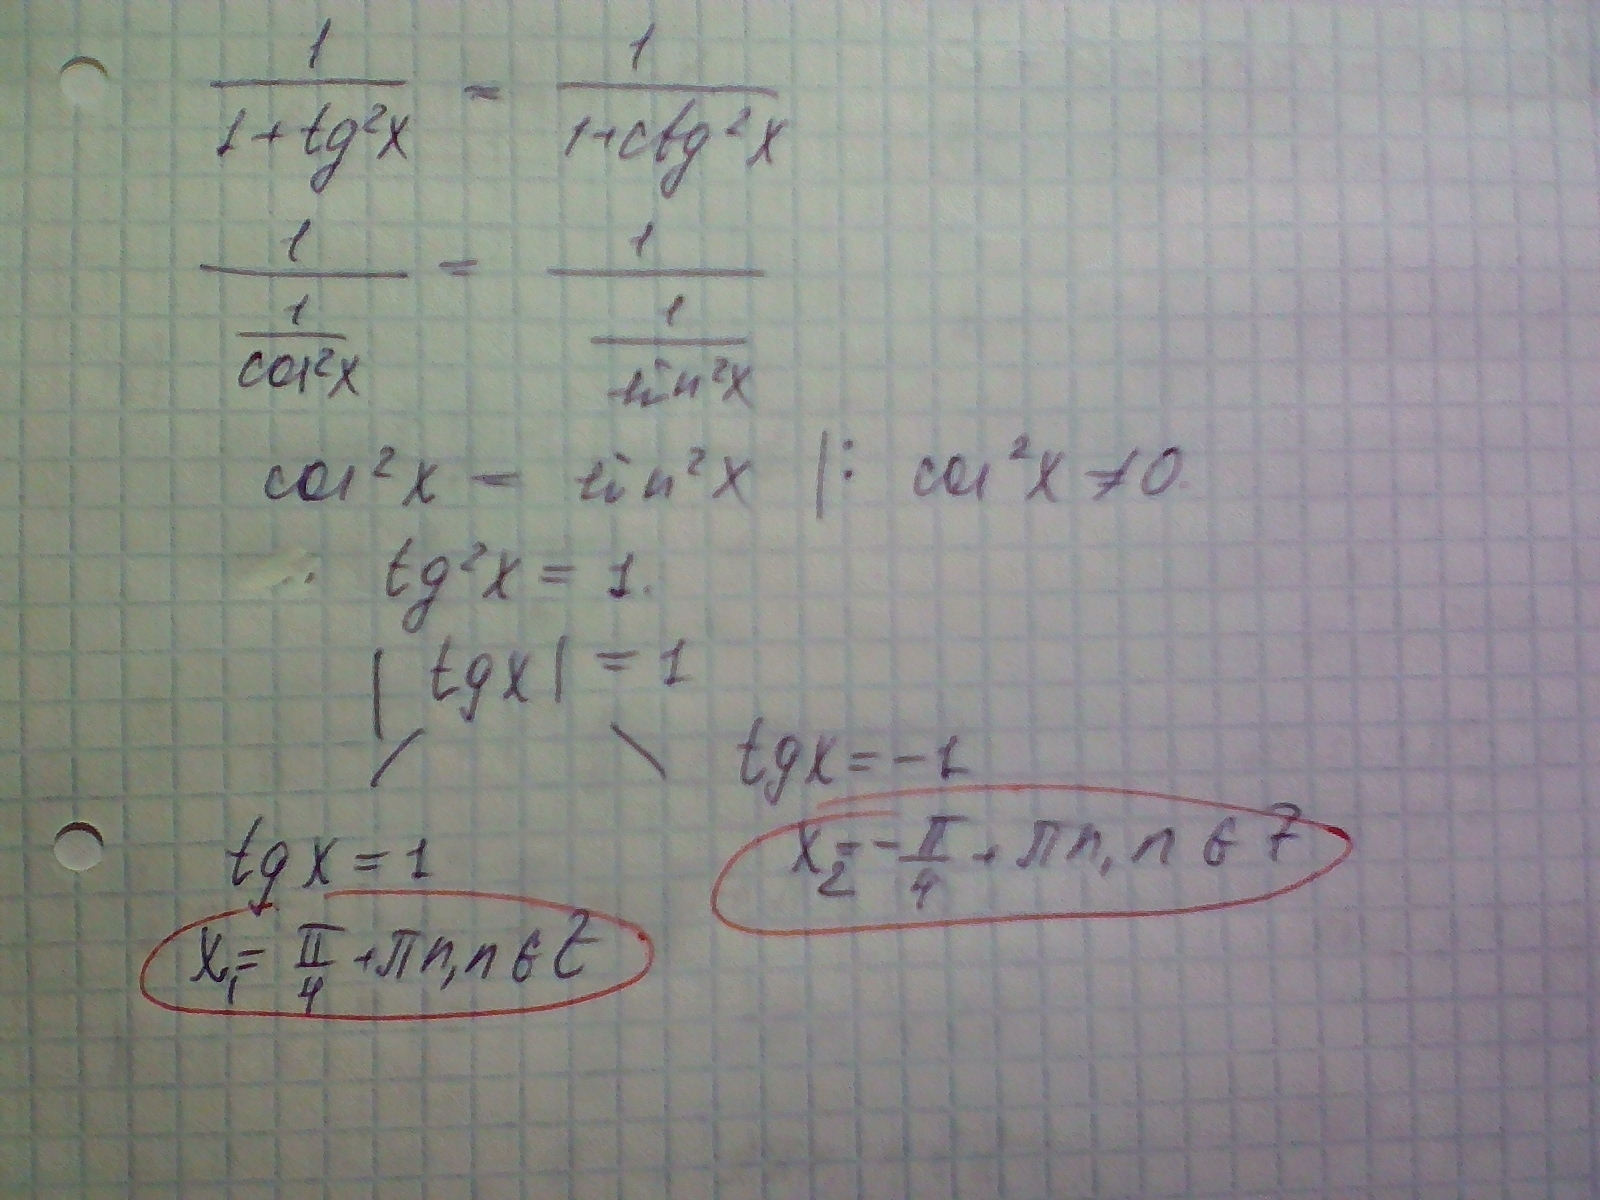 1/(1+tg²x) = 1/(1+ctg²x)
1/(1/cos²x) = 1/(1/sin²x)
cos²x = sin²x |: cos²x ≠ 0.
tg²x = 1.
|tgx| = 1
tgx = -1
x₂ = -π/4 + πn, n ∈ Z
tgx = 1
x₁ = π/4 + πn, n ∈ Z